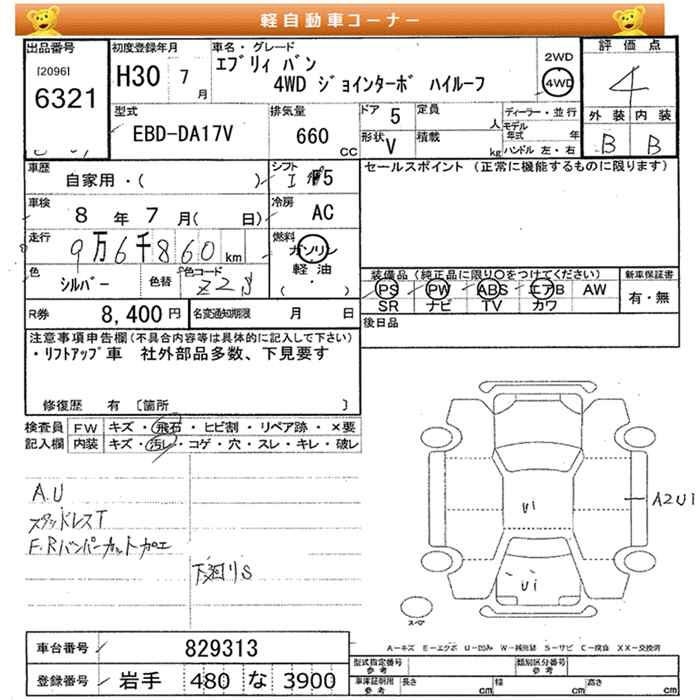 軽自動車コーナー
出品番号 [2096] 6321
初度登録年月 H30 7月
車名・グレード エブリィ バン
4WD ジョインターボ ハイルーフ
2WD
4WD
評価点 4
外装 内装
B B
型式 EBD-DA17V
排気量 660 CC
ドア 5
形状 V
定員 人
積載 kg
ディーラー・並行
モデル年式 年
ハンドル 左・右
車歴 自家用・( )
シフト I 5
セールスポイント (正常に機能するものに限ります)
車検 8年7月( 日)
冷房 AC
走行 9万6千860km
燃料 ガソリン
軽油
( ・ )
色 シルバー 色替 色コード Z2S
装備品 (純正品に限り○をつけてください) 新車保証書
PS PW ABS エアB AW 有・無
SR ナビ TV カワ
R券 8,400円 名変通知期限 月 日
後日品
注意事項申告欄(不具合内容等は具体的に記入して下さい)
・リフトアップ車 社外部品多数、下見要す
修復歴 有 [箇所 ]
検査員 FW キズ・飛石・ヒビ割・リペア跡・×要
記入欄 内装 キズ・汚レ・コゲ・穴・スレ・キレ・破レ
A.U
スタッドレスT
F.Rバンパーカット加工
下廻りS
U1
A2U1
U1
スペア
A-キズ E-エクボ U-凹み W-補修跡 S-サビ C-腐食 XX-交換済
車台番号 829313
型式指定番号 参考 類別区分番号 参考
登録番号 岩手 480 な 3900
車庫証明用 参考 長さ cm 幅 cm 高さ cm